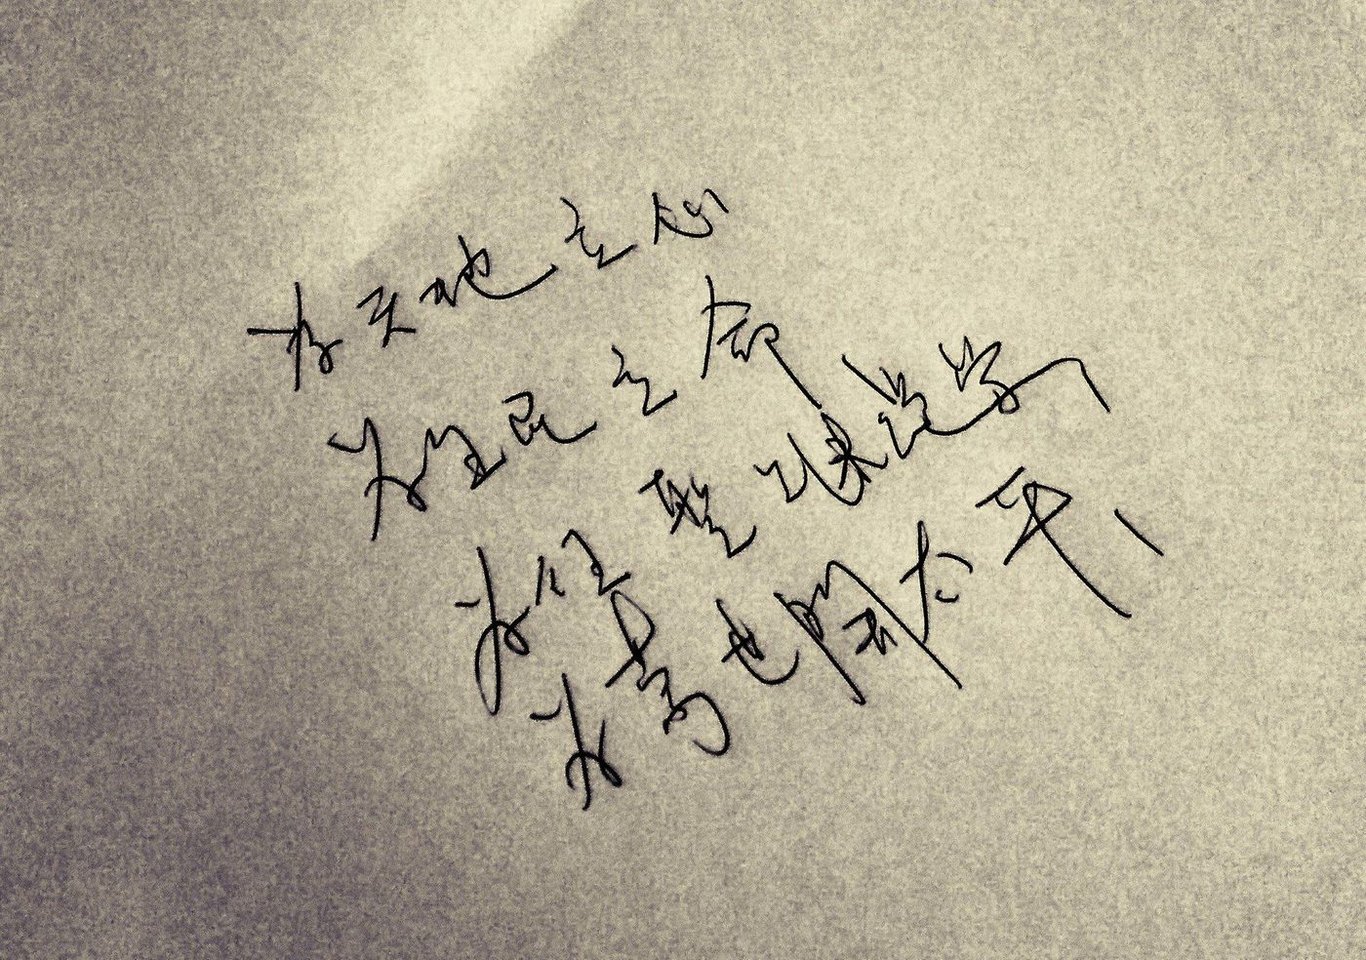 为天地立心
为生民立命
为往聖继绝学
为萬世開太平、